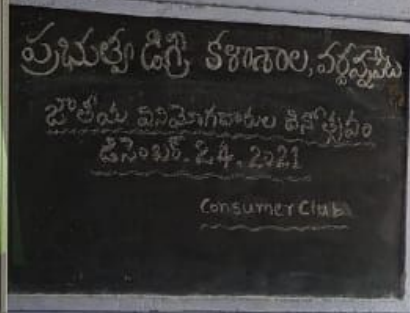 ప్రభుత్వ డిగ్రీ కళాశాల, వర్ధన్నపేట
జాతీయ వినియోగదారుల దినోత్సవం
డిసెంబర్. 24. 2021
Consumer Club